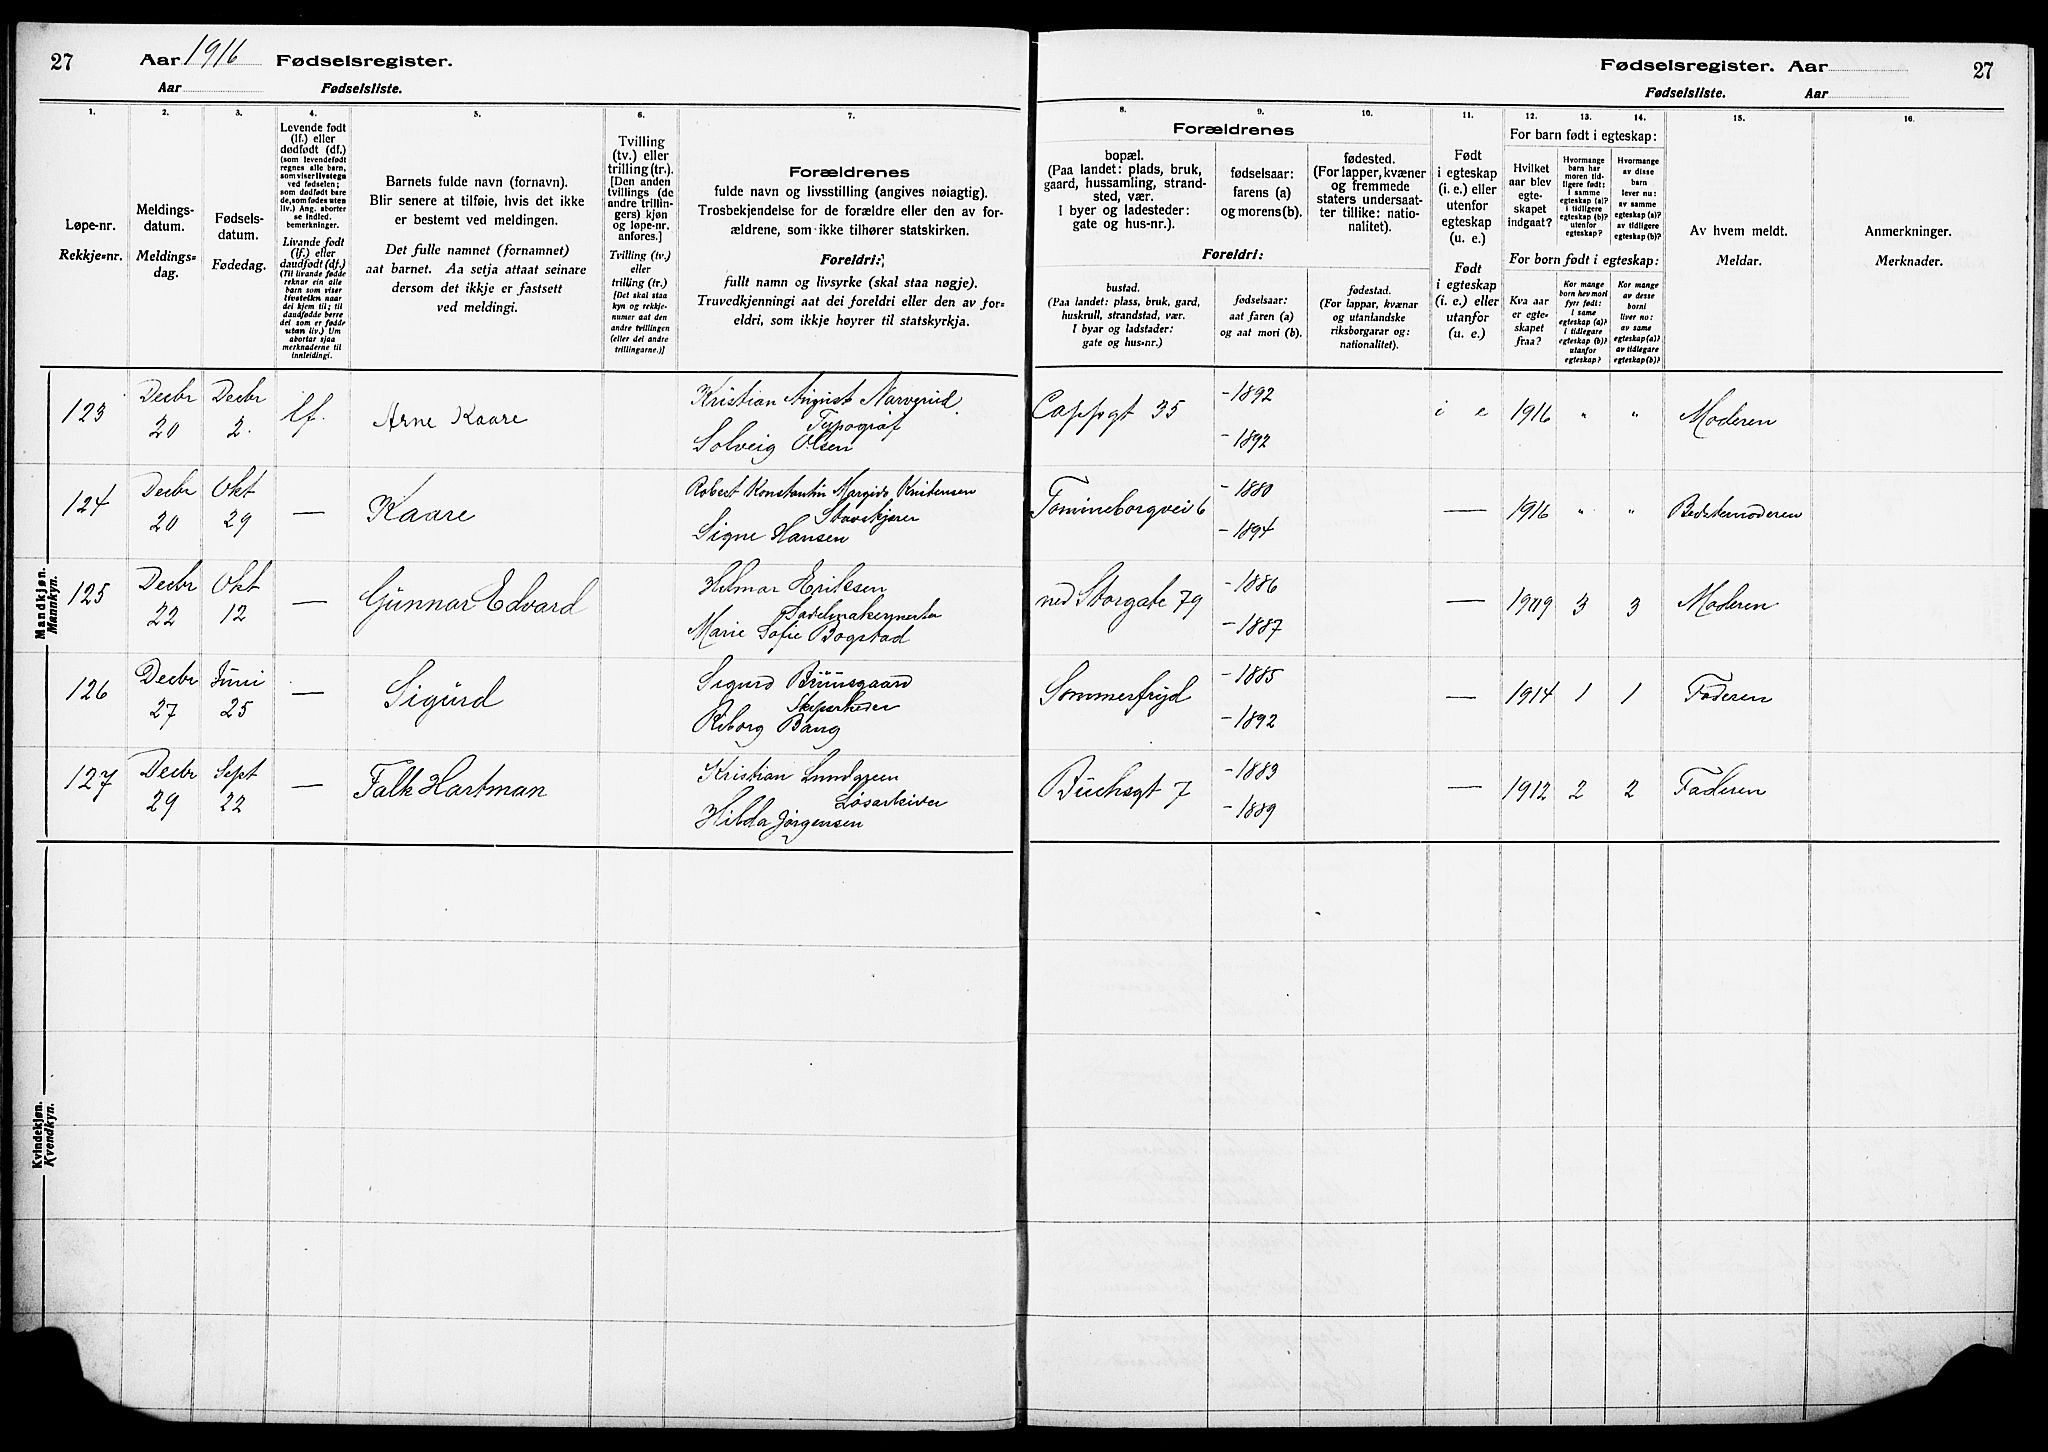 27
Aar 1916 Fødselsregister.
Aar Fødselsliste.
1.
2.
3.
4.
5.
6.
7.
Løpe-nr.
Rekkje-nr.
Meldings-
datum.
Meldings-
dag.
Fødsels-
datum.
Fødedag.
Levende født
(lf.) eller
dødfødt (df.)
(som levendefødt
regnes alle barn,
som viser livstegn
ved fødselen;
som dødfødt bare
de, som fødes uten
liv.) Ang. aborter
se indled.
bemerkninger.
Livande født
(lf.) eller
daudfødt (df.)
(Til livande fødde
reknar ein alle
barn som viser
livsteikn naar
dei kjem til; til
daudfødde berre
dei som er fødde
utan liv.) Um
abortar sjaa
merknaderne til
innleidingi.
Barnets fulde navn (fornavn).
Blir senere at tilføie, hvis det ikke
er bestemt ved meldingen.
Det fulle namnet (fornamnet)
aat barnet. Aa setja attaat seinare
dersom det ikkje er fastsett
ved meldingi.
Tvilling
(tv.) eller
trilling (tr.).
[Den anden
tvillings (de
andre trillin-
gers) kjøn
og løpe-nr.
anføres.]
Tvilling (tv.)
eller
trilling (tr.)
[Det skal staa
kyn og rekkje-
numer aat den
andre tvillingen
(eller dei andre
trillingarne.)]
Forældrenes
fulde navn og livsstilling (angives nøiagtig).
Trosbekjendelse for de forældre eller den av for-
ældrene, som ikke tilhører statskirken.
Foreldri:
fullt namn og livsyrke (skal staa nøgje).
Truvedkjenningi aat dei foreldri eller den av for-
eldri, som ikkje høyrer til statskyrkja.
Mandkjøn.
Mannkyn.
123
Decbr
20
Decbr
2.
lf.
Arne Kaare
Kristian August Narverud.
Typograf
Solveig Olsen
124
Decbr
20
Okt
29
—
Kaare
Robert Konstantin Margido Kristensen
Signe Hansen
125
Decbr
22
Okt
12
—
Gunnar Edvard
Hilmar Eriksen
Sadelmakermester
Marie Sofie Bogstad
126
Decbr
27
Juni
25
—
Sigurd
Sigurd Bruusgaard
Skipsrheder
Bang
127
Decbr
29
Sept
22
—
Falk Hartman
Kristian Lundgreen
Løsarbeiver
Hilda Jørgensen
Kvindekjøn.
Kvendkyn.
Fødselsregister. Aar
27
Fødselsliste. Aar
8.
9.
10.
11.
12.
13.
14.
15.
16.
Forældrenes
bopæl.
(Paa landet: plads, bruk,
gaard, hussamling, strand-
sted, vær.
I byer og ladesteder:
gate og hus-nr.).
fødselsaar:
farens (a)
og morens (b).
fødested.
(For lapper, kvæner
og fremmede
staters undersaat-
ter tillike: natio-
nalitet).
Foreldri:
bustad.
(Paa landet: plass, bruk, gard,
huskrull, strandstad, vær.
I byar og ladstader:
gate og hus-nr.)
fødselsaar:
aat faren (a)
og aat mori (b).
fødestad.
(For lappar, kvænar
og utanlandske
riksborgarar og:
nationalitet).
Født
i egteskap
(i. e.) eller
utenfor
egteskap
(u. e.)
Født
i egteskap
(i. e.) eller
utanfor
(u. e.)
For barn født i egteskap:
Hvilket
aar blev
egte-
skapet
indgaat?
Hvormange
barn har
moren tid-
ligere født:
i samme
egteskap (a)?
i tidligere
egteskap (b)?
utenfor
egteskap?
Hvormange
av disse
barn
lever nu:
av samme
egteskap (a)?
av tidligere
egteskap (b)?
For born født i egteskap:
Kva aar
er egte-
skapet
fraa?
Kor mange
born hev mori
fyrr født:
i same
egteskap (a)?
i tidlegare
egteskap (b)?
utanfor
egteskap?
Kor mange
av desse
borni
liver no:
av same
egteskap (a)?
av tidlegare
egteskap (b)?
Av hvem meldt.
Meldar.
Anmerkninger.
Merknader.
Cappsgt 35
-1892
-1892
i e
1916
"
"
Moderen
Tomineborgvei 6
-1880
-1894
—
1916
"
"
Bedstemoderen
ned Storgate 79
-1886
-1887
—
1909
3
3
Moderen
Sommerfryd
-1885
-1892
—
1914
1
1
Faderen
Buchsgt 7
-1883
-1889
—
1912
2
2
Faderen